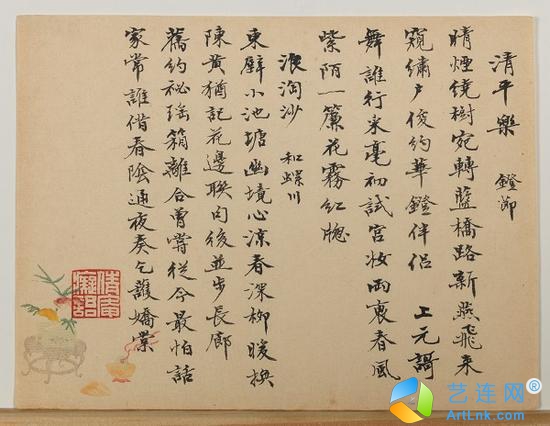 清平樂 鐙節
晴煙繞樹宛轉藍橋路新燕飛來
窺繡戶俊約華鐙伴侶 上元謌
舞誰行柔毫初試宮妝雨裏春風
紫陌一簾花霧紅牕
浪淘沙 和螺川
東壁小池塘幽境心涼春深柳暖換
陳黃猶記花邊聯句後並步長廊
舊約祕瑤箱離合曾嘗從今最怕話
家常誰借春陰通夜奏乞護嬌棠
艺连网®
ArtLnk.com